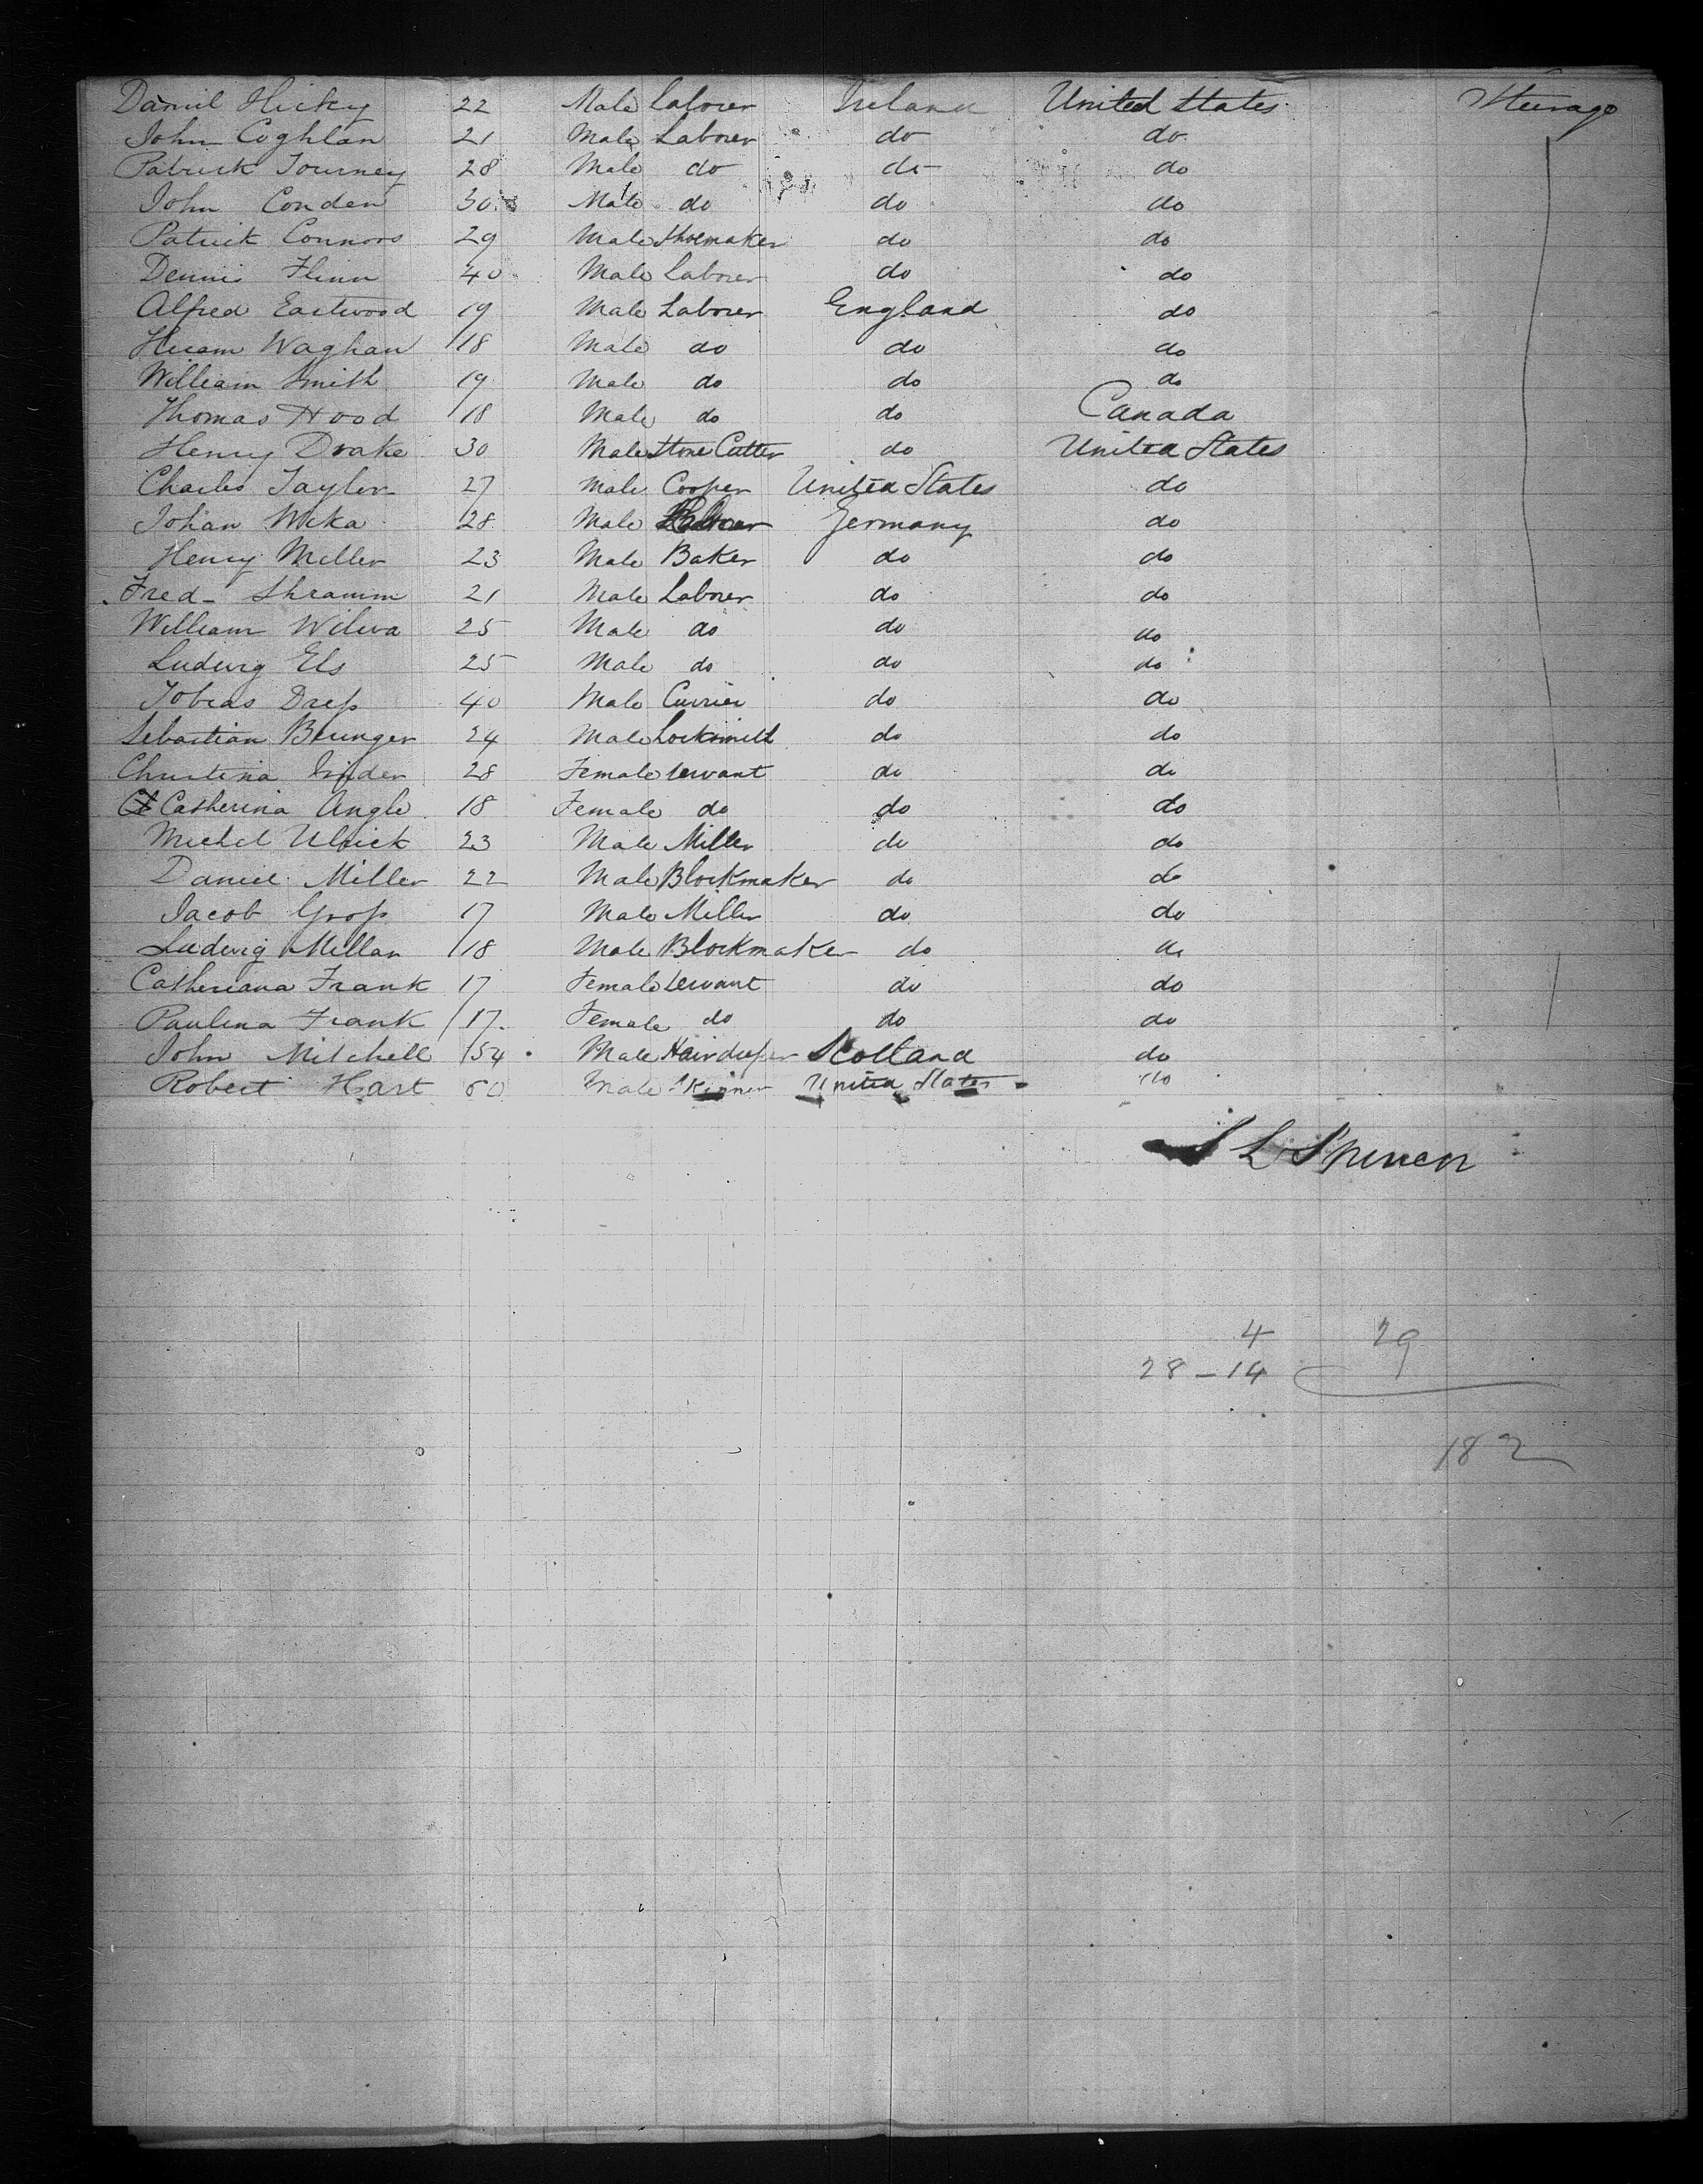 Daniel Hickey 22 Male Laborer Ireland United States Steerage
John Coghlan 21 Male Laborer do do
Patrick Tourney 28 Male do do do
John Conden 30 Male do do do
Patrick Connors 29 Male Shoemaker do do
Dennis Flinn 40 Male Laborer do do
Alfred Eastwood 19 Male Laborer England do
Hiram Waghan 18 Male do do do
William Smith 19 Male do do do
Thomas Hood 18 Male do do Canada
Henry Drake 30 Male Stone Cutter do United States
Charles Taylor 27 Male Cooper United States do
Johan Weka 28 Male Germany do
Henry Miller 23 Male Baker do do
Fred- Shramm 21 Male Laborer do do
William 25 Male do do do
Ludwig Els 25 Male do do do
Tobias Dress 40 Male Currier do do
Sebastian Bounger 24 Male Locksmith do do
Christina 28 Female Servant do do
Catherina Angle 18 Female do do do
Michel Ulrick 23 Male Miller do do
Daniel Miller 22 Male Blockmaker do do
Jacob Gross 17 Male Miller do do
Ludwig Millar 18 Male Blockmaker do do
Catheriana Frank 17 Female Servant do do
Paulina Frank 17 Female do do do
John Mitchell 54 Male Hairdresser Scotland do
Robert Hart 60 Male Skinner United States do
S L Spencer
4 29
28 - 14
182